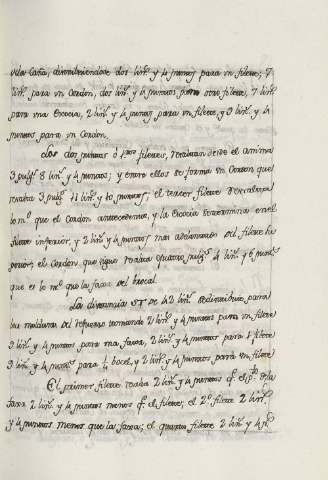 una Caña, distribuiendose dos lin.s y 4 puntos para un filete, 7
lin.s para un Cordon, dos lin.s y 4 puntos para otro filete, 7 lin.s
para una Escocia, 2 lin.s y 4 puntos para un filete, y 9 lin.s y 4
puntos para un Cordon.
Los dos primeros filetes, resaltan desde el anima
3 pulg.s 8 lin.s y 4 puntos, y entre ellos se forma un Cordon que
resalta 3 pulg.s 11 lin.s y 10 puntos; el tercer filete resalta
lo m.o que el Cordon antecedente, y la Escocia determina en el
filete inferior, y 2 lin.s y 4 puntos mas adelantado del filete su
perior; el Cordon que sigue resalta quatro pulg.s 4 lin.s y 6 punt.s
que es lo m.o que la faxa del brocal.
La distancia ST de 42 lin.s se distribuie para
las molduras del refuerzo tomando 2 lin.s y 4 puntos para un filete
9 lin.s y 4 puntos para una faxa, 2 lin.s y 4 puntos para 1 filete
9 lin.s y 4 punt.s para 1/4 bocel, y 2 lin.s y 4 puntos para un filete
El primer filete resalta 2 lin.s y 4 puntos
faxa 2 lin.s y 4 puntos menos q.e el filete; el 2.o filete 2 lin.s
y 4 puntos menos que la faxa; el quarto filete 2 lin.s y 4 p.s